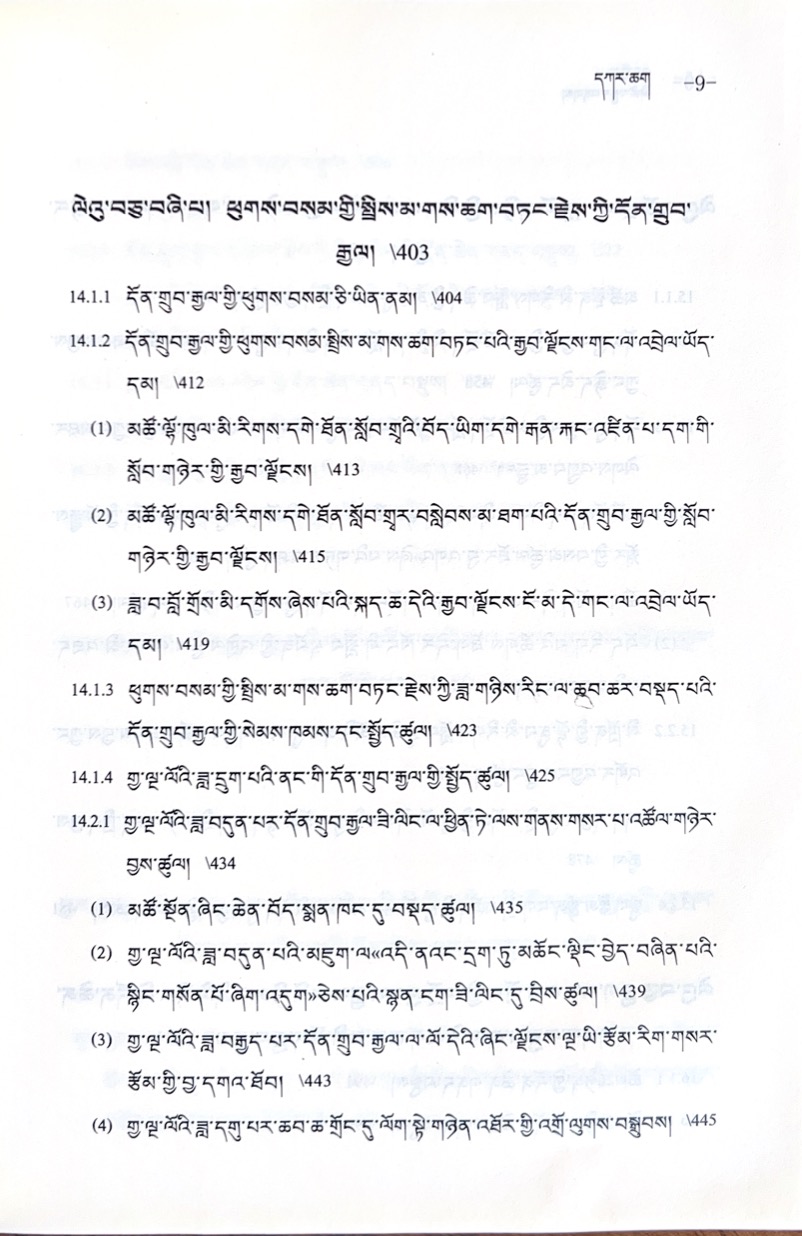 དཀར་ཆག -9-
ལེའུ་བཅུ་བཞི་པ། ཕུགས་བསམ་གྱི་སྤྲིས་མ་གས་ཆག་བཏང་རྗེས་ཀྱི་དོན་གྲུབ་
རྒྱལ། \403
14.1.1 དོན་གྲུབ་རྒྱལ་གྱི་ཕུགས་བསམ་ཅི་ཡིན་ནམ། \404
14.1.2 དོན་གྲུབ་རྒྱལ་གྱི་ཕུགས་བསམ་སྤྲིས་མ་གས་ཆག་བཏང་པའི་རྒྱབ་ལྗོངས་གང་ལ་འབྲེལ་ཡོད་
དམ། \412
(1) མཚོ་ལྷོ་ཁུལ་མི་རིགས་དགེ་ཐོན་སློབ་གྲྭའི་བོད་ཡིག་དགེ་རྒན་རྐང་འཛིན་པ་དག་གི་
སློབ་གཉེར་གྱི་རྒྱབ་ལྗོངས། \413
(2) མཚོ་ལྷོ་ཁུལ་མི་རིགས་དགེ་ཐོན་སློབ་གྲྭར་བསླེབས་མ་ཐག་པའི་དོན་གྲུབ་རྒྱལ་གྱི་སློབ་
གཉེར་གྱི་རྒྱབ་ལྗོངས། \415
(3) ཟླ་བ་བློ་གྲོས་མི་དགོས་ཞེས་པའི་སྐད་ཆ་དེའི་རྒྱབ་ལྗོངས་ངོ་མ་དེ་གང་ལ་འབྲེལ་ཡོད་
དམ། \419
14.1.3 ཕུགས་བསམ་གྱི་སྤྲིས་མ་གས་ཆག་བཏང་རྗེས་ཀྱི་ཟླ་གཉིས་རིང་ལ་ཆུབ་ཆར་བསྡད་པའི་
དོན་གྲུབ་རྒྱལ་གྱི་སེམས་ཁམས་དང་སྤྱོད་ཚུལ། \423
14.1.4 གྱ་ལྔ་ལོའི་ཟླ་དྲུག་པའི་ནང་གི་དོན་གྲུབ་རྒྱལ་གྱི་སྤྱོད་ཚུལ། \425
14.2.1 གྱ་ལྔ་ལོའི་ཟླ་བདུན་པར་དོན་གྲུབ་རྒྱལ་ཟི་ལིང་ལ་ཕྱིན་ཏེ་ལས་གནས་གསར་པ་འཚོལ་གཉེར་
བྱས་ཚུལ། \434
(1) མཚོ་སྔོན་ཞིང་ཆེན་བོད་སྨན་ཁང་དུ་བསྡད་ཚུལ། \435
(2) གྱ་ལྔ་ལོའི་ཟླ་བདུན་པའི་མཇུག་ལ《འདི་ནའང་དྲག་ཏུ་མཆོང་ལྡིང་བྱེད་བཞིན་པའི་
སྙིང་གསོན་པོ་ཞིག་འདུག》ཅེས་པའི་སྙན་ངག་ཟི་ལིང་དུ་བྲིས་ཚུལ། \439
(3) གྱ་ལྔ་ལོའི་ཟླ་བརྒྱད་པར་དོན་གྲུབ་རྒྱལ་ལ་ལོ་དེའི་ཞིང་ལྗོངས་ལྔ་ཡི་རྩོམ་རིག་གསར་
རྩོམ་གྱི་བྱ་དགའ་ཐོབ། \443
(4) གྱ་ལྔ་ལོའི་ཟླ་དགུ་པར་ཆབ་ཆ་གྲོང་དུ་ལོག་སྟེ་གཉེན་འཐོར་གྱི་འགྲོ་ལུགས་བསྒྲུབས། \445